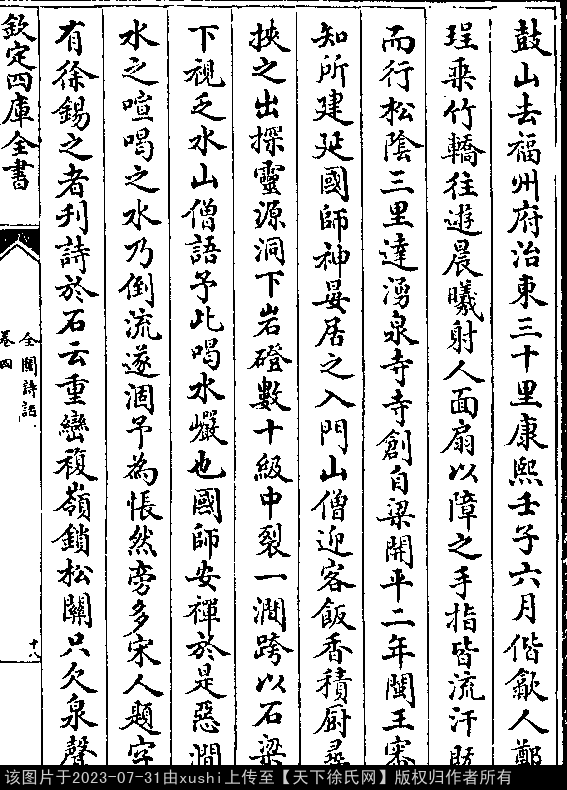 鼓山去福州府治東三十里康熙壬子六月偕歙人鄭
珵乗竹轎往遊晨曦射人面扇以障之手指皆流汗旣
而行松陰三里達湧泉寺寺創自梁開平二年閩王審
知所建延國師神晏居之入門山僧迎客飯香積厨尋
挾之出探靈源洞下岩磴數十級中裂一澗跨以石梁
下視乏水山僧語予此喝水巖也國師安禪於是惡澗
水之喧喝之水乃倒流遂涸予為悵然旁多宋人題字
有徐錫之者刋詩於石云重巒複嶺鎖松關只欠泉聲
欽定四庫全書
全閩詩話
卷四
十八
该图片于2023-07-31由xushi上传至【天下徐氏网】版权归作者所有